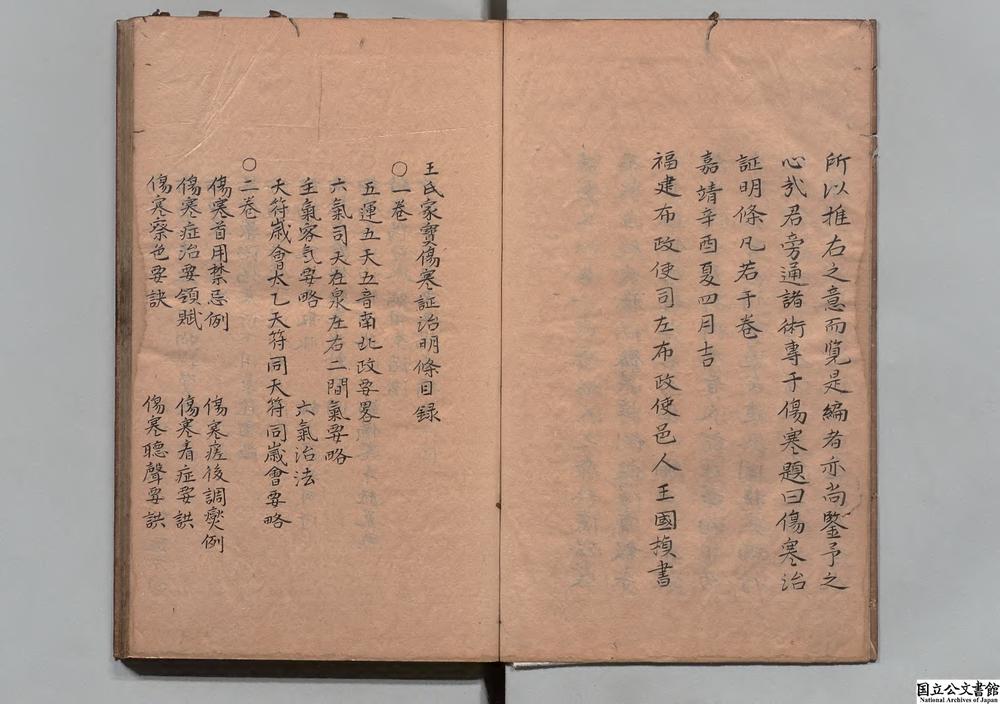 所以推右之意而覧是編者亦尚鍳予之
心㢤君旁通諸術專于傷寒題曰傷寒治
証明條凡若干卷
嘉靖辛酉夏四月吉
福建布政使司左布政使邑人王國楨書
王氏家寳傷寒証治明條目録
〇一卷
五運五天五音南北政要畧
六氣司天在泉左右二間氣要略
主氣客氣要略 六氣治法
天符歲會太乙天符同天符同歲會要略
〇二卷
傷寒首用禁忌例 傷寒瘥後調燮例
傷寒症治要領賦 傷寒看症要訣
傷寒察色要訣 傷寒聴聲要訣
国立公文書館
National Archives of Japan